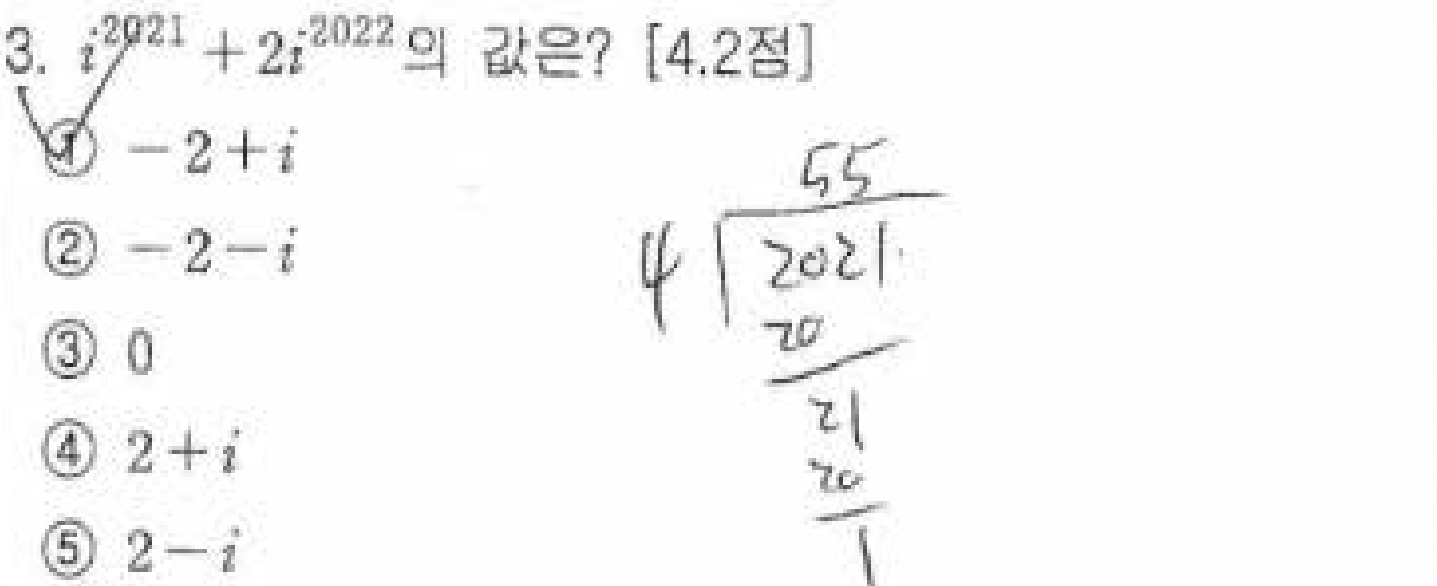 3. i^2021 + 2i^2022의 값은? [4.2점]
① -2+i
② -2-i
③ 0
④ 2+i
⑤ 2-i
55
4 2021
20
21
20
1